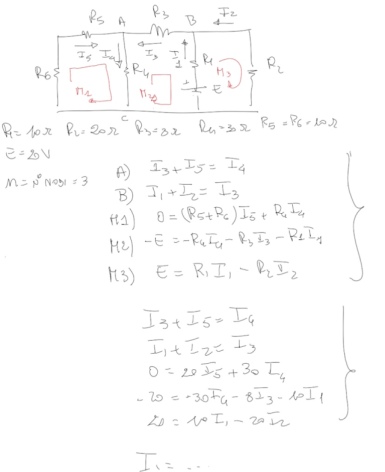 R5 A R3 B I2
I5 I4 I3 I1 R1
R6 M1 R4 M2 E M3 R2
C
R1 = 10Ω R2 = 20Ω R3 = 8Ω R4 = 30Ω R5 = R6 = 10Ω
E = 20V
n = N° NODI = 3
A) I3 + I5 = I4
B) I1 + I2 = I3
M1) 0 = (R5+R6) I5 + R4 I4
M2) -E = -R4 I4 - R3 I3 - R1 I1
M3) E = R1 I1 - R2 I2
I3 + I5 = I4
I1 + I2 = I3
0 = 20 I5 + 30 I4
-20 = -30 I4 - 8 I3 - 10 I1
20 = 10 I1 - 20 I2
I1 = ....